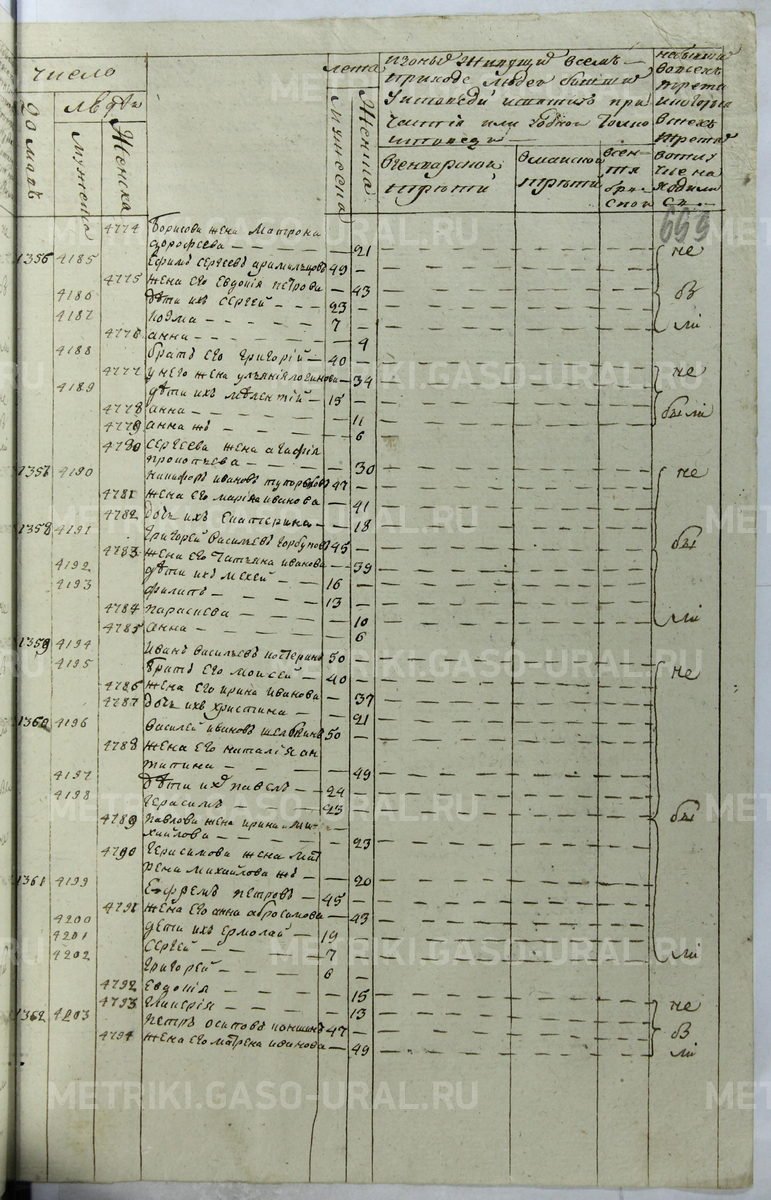 число
домовъ
людей
мужеска
Женска
лета
мужеска
Женска
изоныхъ живущи всемъ
приходе людей бывши
у исповеди и святаго при
частия или только
исповедь
в генварской
трети
в майской
трети
небывши
трети
693
4774 Борисова жена Матрона
дорофеева — 21
1356 4185 Ефимъ Сергеевъ 49
4775 жена его Евдокия петрова — 43
4186 дѣти ихъ Сергей — 23
4187 козма — 7
4776 анна — 4
4188 братъ его григорій — 40
4777 у него жена улияния логинова — 34
4189 дѣти ихъ мелентій — 15
4778 анна — 11
4779 анна жъ — 6
4780 Сергеева жена агафия
прокопьева — 30
1357 4190 никифоръ ивановъ 47
4781 жена его марина иванова — 41
4782 дочь ихъ Екатерина — 18
1358 4191 григорей Васильевъ горбуновъ 45
4783 жена его Татьяна иванова — 39
4192 дѣти ихъ — 16
4193 филипъ — 13
4784 параскева — 10
4785 анна — 6
1359 4194 иванъ васильевъ 50
4195 братъ его Моисей — 40
4786 жена его ирина иванова — 37
4787 дочь ихъ христина — 21
1360 4196 Василей ивановъ 50
4788 жена его наталія ан
типина — 49
4197 дѣти ихъ павелъ — 24
4198 герасимъ — 23
4789 павлова жена ирина ми-
хайлова — 23
4790 герасимова жена мат
рена михайлова жъ — 20
1361 4199 Ефремъ петровъ — 45
4791 жена его анна абросимова — 43
4200 дети ихъ ермолай — 19
4201 Сергей — 7
4202 григорей — 6
4792 Евдокия — 15
4793 гликерія — 13
1362 4203 петръ осиповъ 47
4794 жена его матрена иванова — 49
не
бы
ли
не
были
не
бы
ли
не
бы
ли
не
бы
ли
METRIKI.GASO-URAL.RU